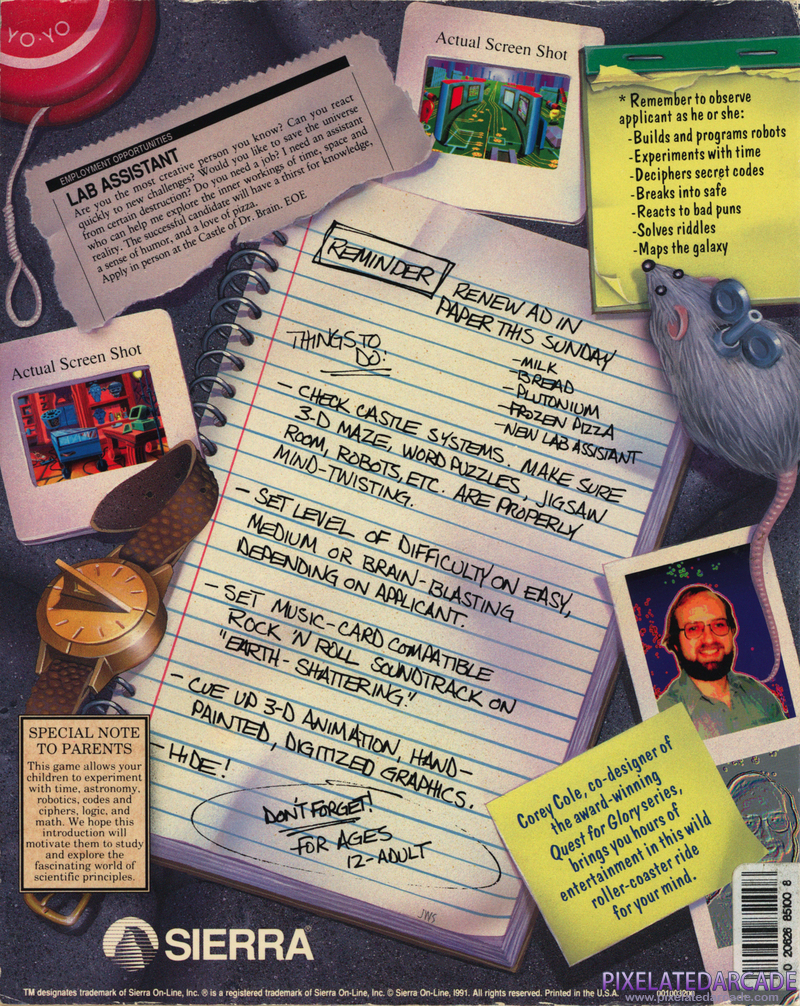 YO-YO
EMPLOYMENT OPPORTUNITIES
LAB ASSISTANT
Are you the most creative person you know? Can you react
quickly to new challenges? Would you like to save the universe
from certain destruction? Do you need a job? I need an assistant
who can help me explore the inner workings of time, space and
reality. The successful candidate will have a thirst for knowledge,
a sense of humor, and a love of pizza.
Apply in person at the Castle of Dr. Brain. EOE
Actual Screen Shot
* Remember to observe
applicant as he or she:
-Builds and programs robots
-Experiments with time
-Deciphers secret codes
-Breaks into safe
-Reacts to bad puns
-Solves riddles
-Maps the galaxy
Actual Screen Shot
REMINDER
RENEW AD IN
PAPER THIS SUNDAY
-MILK
-BREAD
-PLUTONIUM
-FROZEN PIZZA
-NEW LAB ASSISTANT
THINGS TO
DO:
- CHECK CASTLE SYSTEMS. MAKE SURE
3-D MAZE, WORD PUZZLES, JIGSAW
ROOM, ROBOTS, ETC. ARE PROPERLY
MIND-TWISTING.
- SET LEVEL OF DIFFICULTY ON EASY,
MEDIUM OR BRAIN-BLASTING
DEPENDING ON APPLICANT.
- SET MUSIC-CARD COMPATIBLE
ROCK 'N ROLL SOUNDTRACK ON
"EARTH-SHATTERING."
- CUE UP 3-D ANIMATION, HAND-
PAINTED, DIGITIZED GRAPHICS.
- HIDE!
DON'T FORGET!
FOR AGES
12-ADULT
JWS
SPECIAL NOTE
TO PARENTS
This game allows your
children to experiment
with time, astronomy,
robotics, codes and
ciphers, logic, and
math. We hope this
introduction will
motivate them to study
and explore the
fascinating world of
scientific principles.
Corey Cole, co-designer of
the award-winning
Quest for Glory series,
brings you hours of
entertainment in this wild
roller-coaster ride
for your mind.
SIERRA
0 20626 85100 8
TM designates trademark of Sierra On-Line, Inc. ® is a registered trademark of Sierra On-Line, Inc. © Sierra On-Line, 1991. All rights reserved. Printed in the U.S.A.
PIXELATEDARCADE
www.pixelatedarcade.com